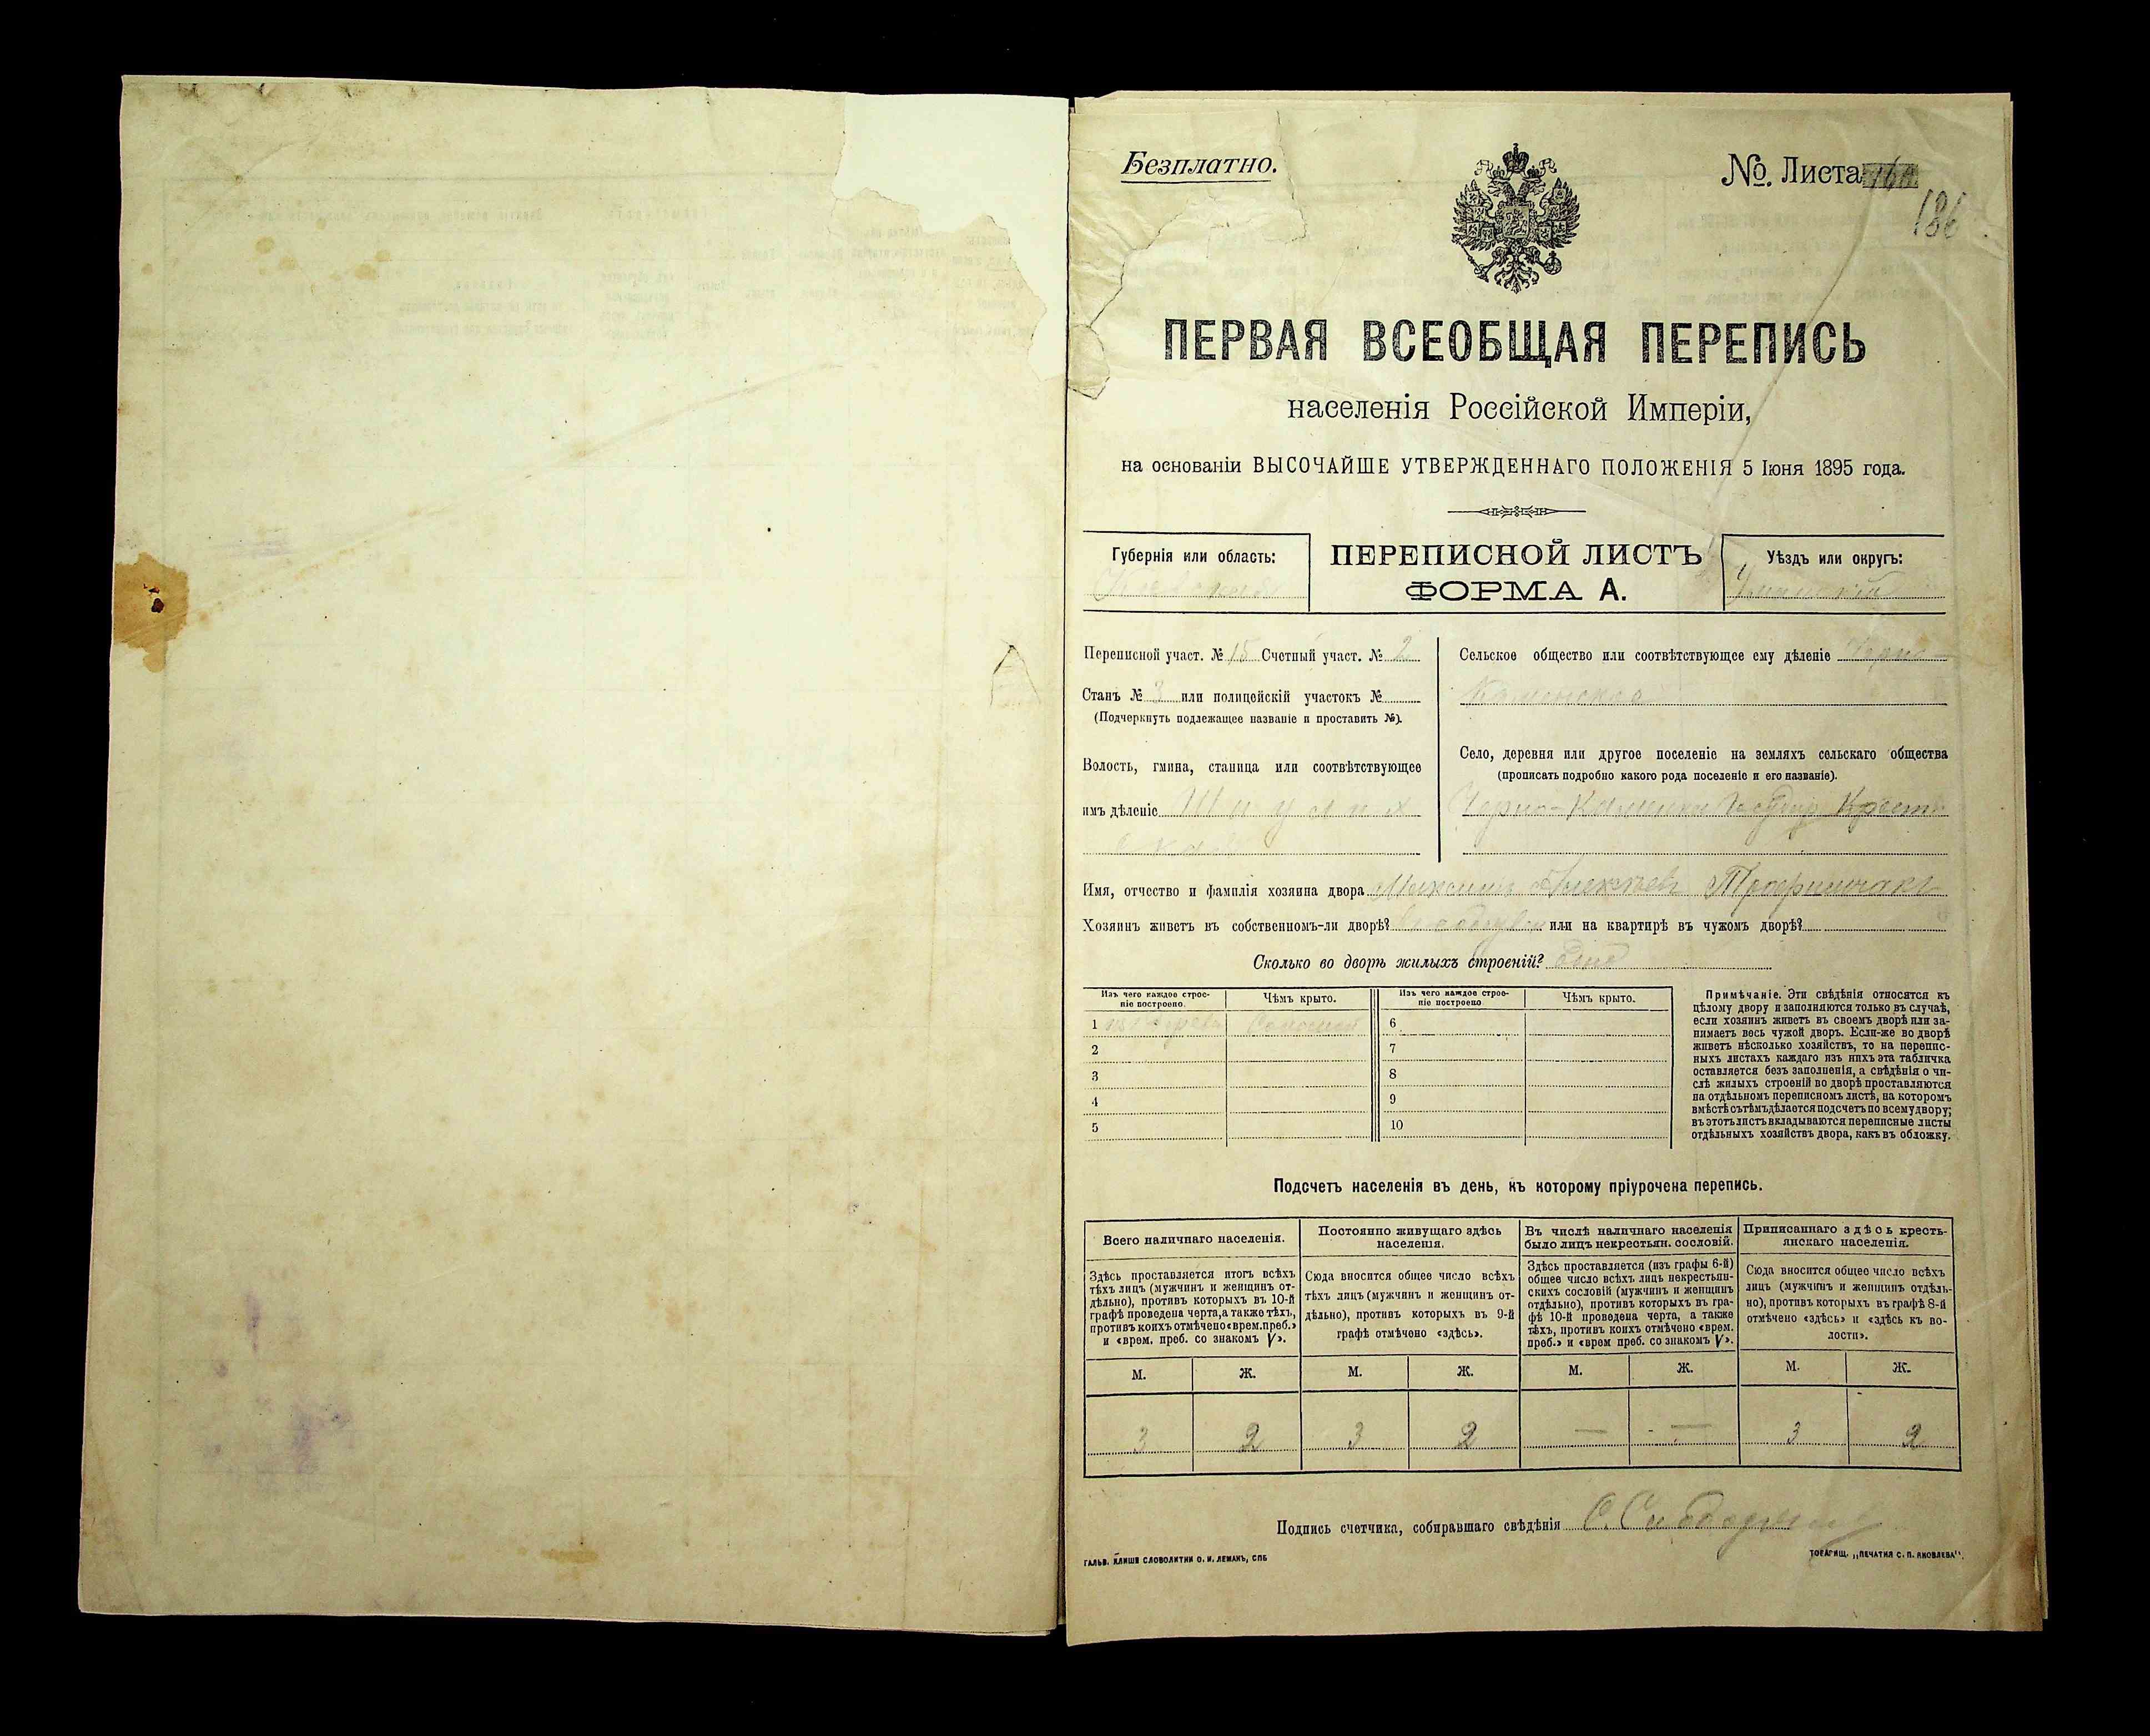 Безплатно.
№. Листа
186
ПЕРВАЯ ВСЕОБЩАЯ ПЕРЕПИСЬ
населенія Россійской Имперіи,
на основаніи ВЫСОЧАЙШЕ УТВЕРЖДЕННАГО ПОЛОЖЕНІЯ 5 Іюня 1895 года.
Губернія или область:
ПЕРЕПИСНОЙ ЛИСТЪ
ФОРМА А.
Уѣздъ или округъ:
Уманскій
Переписной участ. № 15 Счетный участ. № 2
Станъ № 3 или полицейскій участокъ №
(Подчеркнуть подлежащее названіе и проставить №).
Волость, гмина, станица или соотвѣтствующее
имъ дѣленіе
Сельское общество или соотвѣтствующее ему дѣленіе Черно-
Каменское
Село, деревня или другое поселеніе на земляхъ сельскаго общества
(прописать подробно какого рода поселеніе и его названіе).
Черно-Каменка
Имя, отчество и фамилія хозяина двора Максимъ
Хозяинъ живетъ въ собственномъ-ли дворѣ? или на квартирѣ въ чужомъ дворѣ?
Сколько во дворѣ жилыхъ строеній? одно
Изъ чего каждое строе-
ніе построено.
Чѣмъ крыто.
Изъ чего каждое строе-
ніе построено
Чѣмъ крыто.
1 Соломой
2
3
4
5
6
7
8
9
10
Примѣчаніе. Эти свѣдѣнія относятся къ
цѣлому двору и заполняются только въ случаѣ,
если хозяинъ живетъ въ своемъ дворѣ или за-
нимаетъ весь чужой дворъ. Если-же во дворѣ
живетъ нѣсколько хозяйствъ, то на перепис-
ныхъ листахъ каждаго изъ нихъ эта табличка
оставляется безъ заполненія, а свѣдѣнія о чи-
слѣ жилыхъ строеній во дворѣ проставляются
на отдѣльномъ переписномъ листѣ, на которомъ
вмѣстѣ сътѣмъ дѣлается подсчетъ по всему двору;
въ этотъ листъ вкладываются переписные листы
отдѣльныхъ хозяйствъ двора, какъ въ обложку.
Подсчетъ населенія въ день, къ которому пріурочена перепись.
Всего наличнаго населенія.
Здѣсь проставляется итогъ всѣхъ
тѣхъ лицъ (мужчинъ и женщинъ от-
дѣльно), противъ которыхъ въ 10-й
графѣ проведена черта, а также тѣхъ,
противъ коихъ отмѣчено «врем. преб.»
и «врем. преб. со знакомъ V».
Постоянно живущаго здѣсь
населенія.
Сюда вносится общее число всѣхъ
тѣхъ лицъ (мужчинъ и женщинъ от-
дѣльно), противъ которыхъ въ 9-й
графѣ отмѣчено «здѣсь».
Въ числѣ наличнаго населенія
было лицъ некрестьян. сословій.
Здѣсь проставляется (изъ графы 6-й)
общее число всѣхъ лицъ некрестьян-
скихъ сословій (мужчинъ и женщинъ
отдѣльно), противъ которыхъ въ гра-
фѣ 10-й проведена черта, а также
тѣхъ, противъ коихъ отмѣчено «врем.
преб.» и «врем преб. со знакомъ V».
Приписаннаго здѣсь кресть-
янскаго населенія.
Сюда вносится общее число всѣхъ
лицъ (мужчинъ и женщинъ отдѣль-
но), противъ которыхъ въ графѣ 8-й
отмѣчено «здѣсь» и «здѣсь къ во-
лости».
М. Ж. М. Ж. М. Ж. М. Ж.
3 2 3 2 — — 3 2
Подпись счетчика, собиравшаго свѣдѣнія
ГАЛЬВ. КЛИШЕ СЛОВОЛИТНИ О. И. ЛЕМАНЪ, СПБ
ТОВАРИЩ. „ПЕЧАТНЯ С. П. ЯКОВЛЕВА".